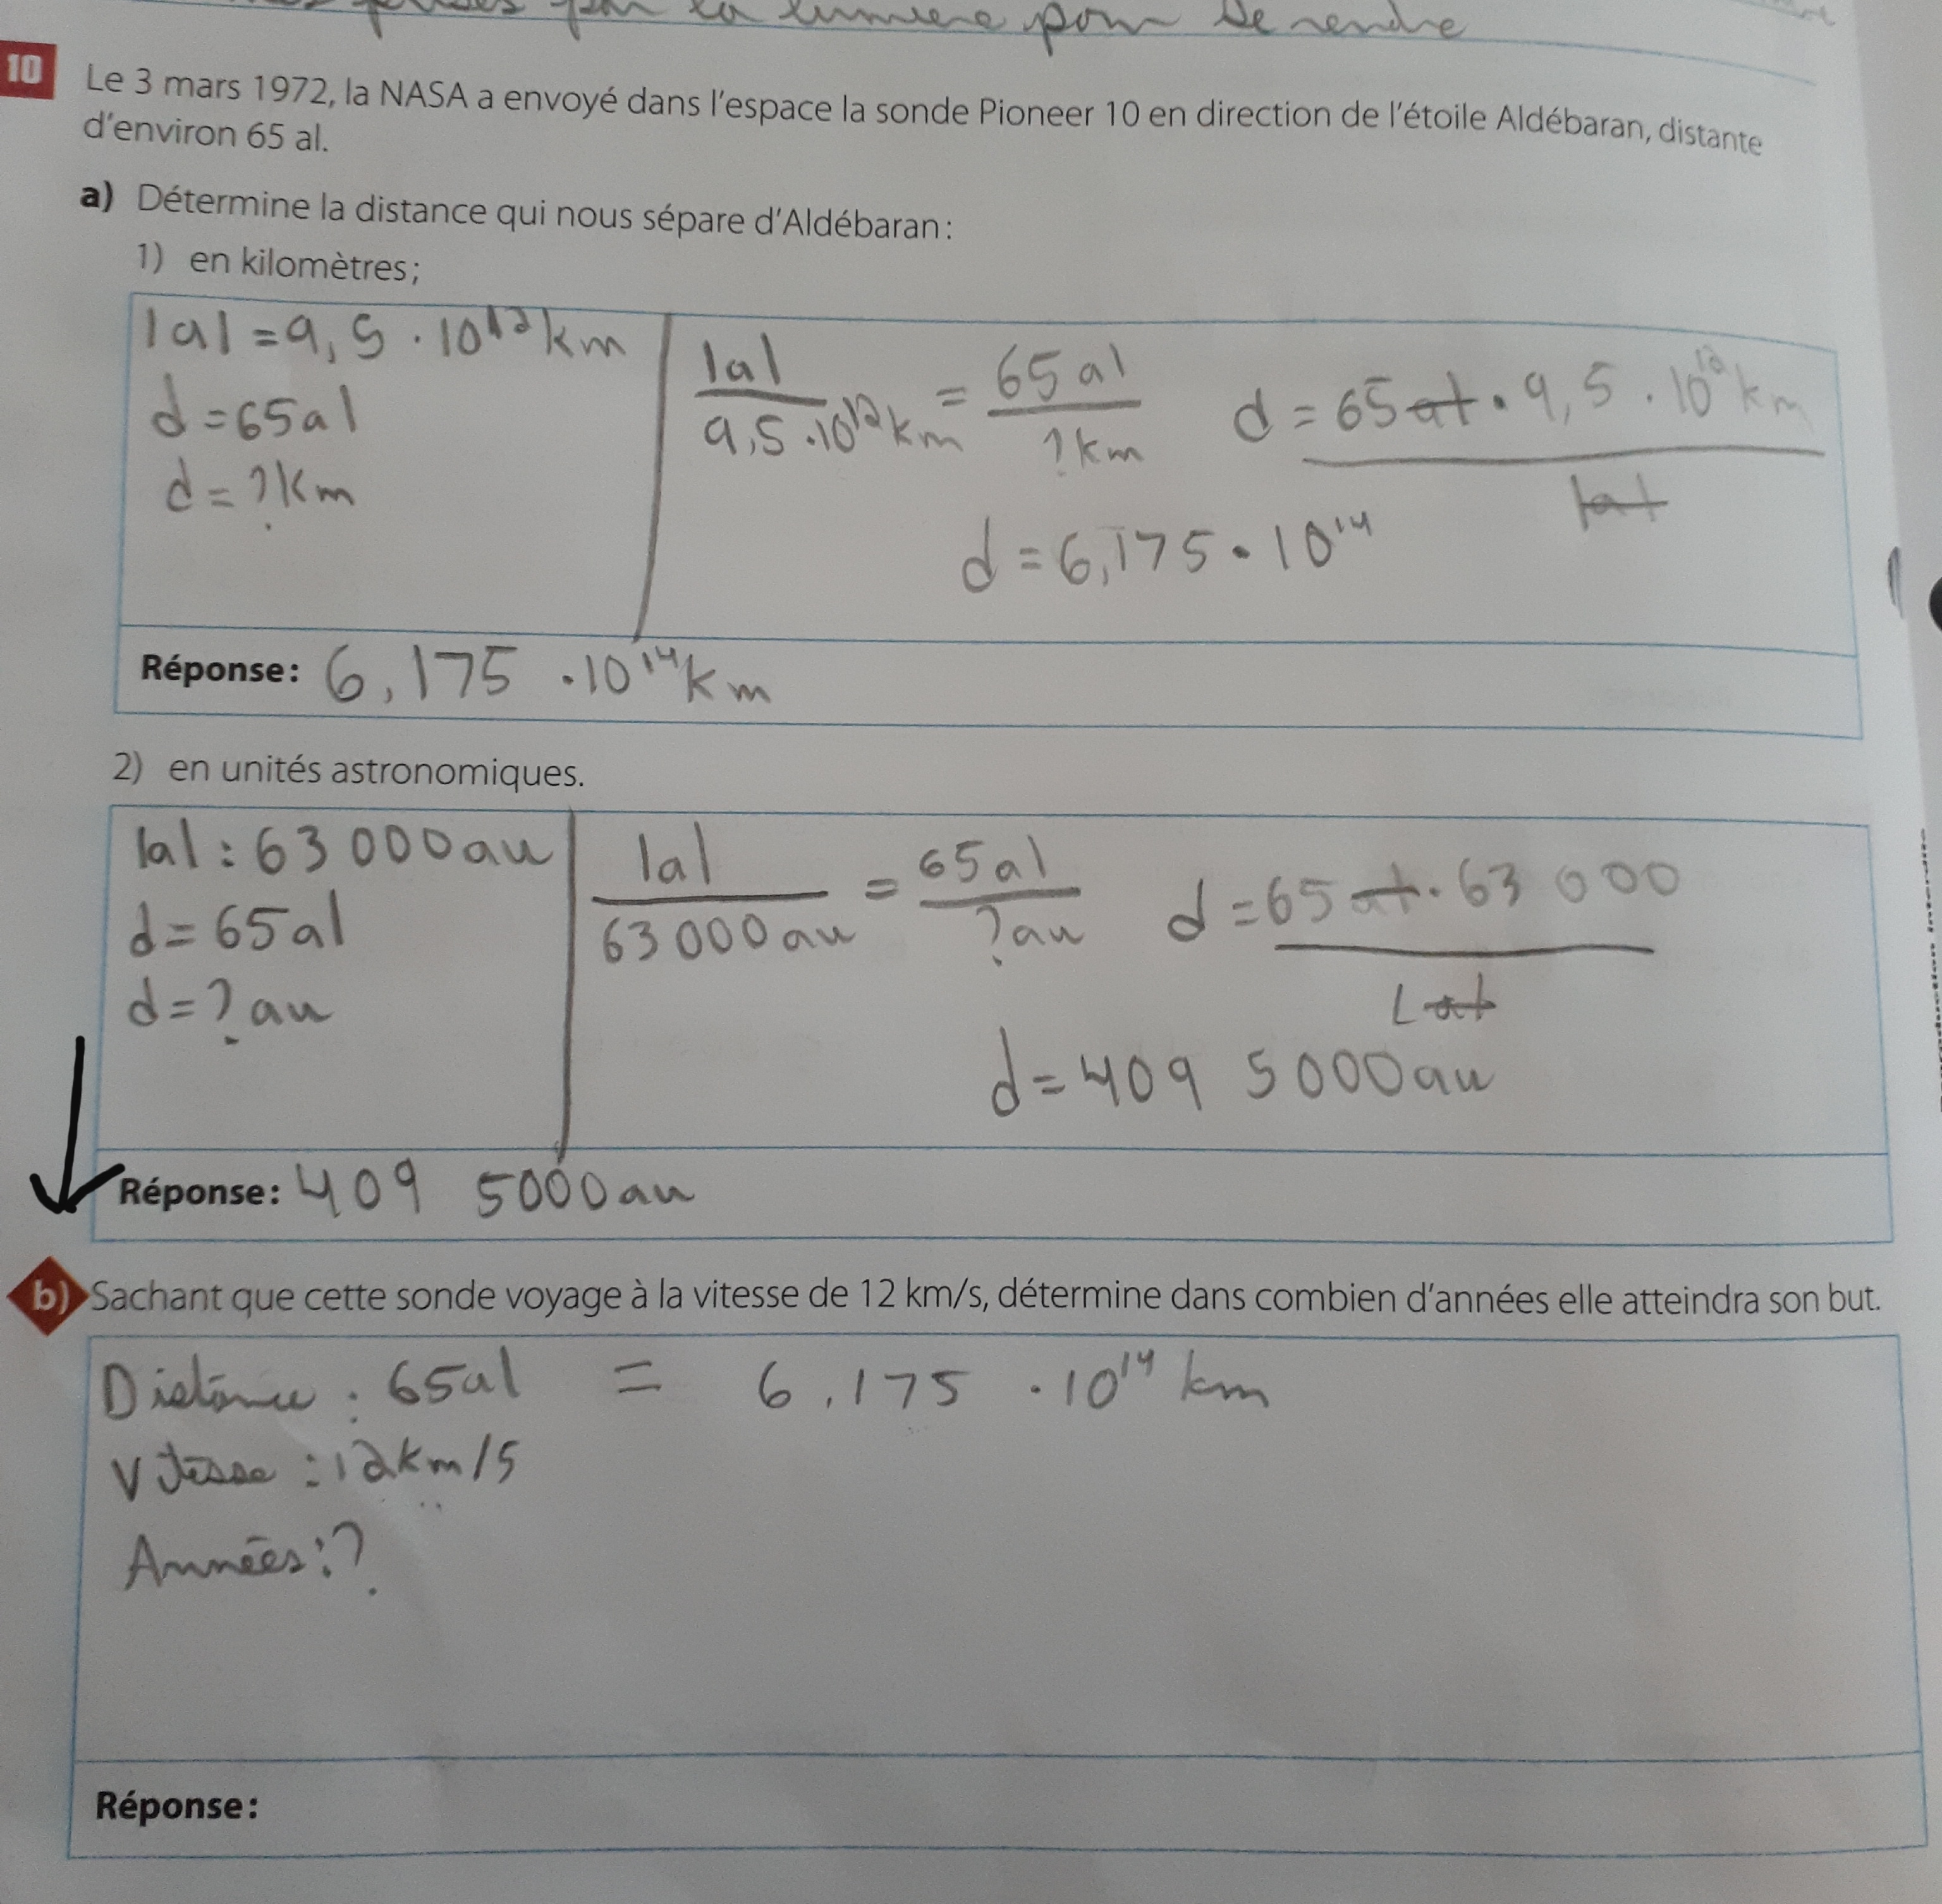 par la lumière pour se rendre
10 Le 3 mars 1972, la NASA a envoyé dans l'espace la sonde Pioneer 10 en direction de l'étoile Aldébaran, distante
d'environ 65 al.
a) Détermine la distance qui nous sépare d'Aldébaran :
1) en kilomètres ;
1al = 9,5 · 10¹² km
d = 65al
d = ? km
1al / 9,5 · 10¹² km = 65 al / ? km
d = 65 al · 9,5 · 10¹² km / 1al
d = 6,175 · 10¹⁴
Réponse : 6,175 · 10¹⁴ km
2) en unités astronomiques.
1al : 63 000 au
d = 65al
d = ? au
1al / 63 000 au = 65al / ? au
d = 65 al · 63 000 / 1 al
d = 409 5000 au
Réponse : 409 5000 au
b) Sachant que cette sonde voyage à la vitesse de 12 km/s, détermine dans combien d'années elle atteindra son but.
Distance : 65al = 6,175 · 10¹⁴ km
Vitesse : 12km/s
Années : ?
Réponse :